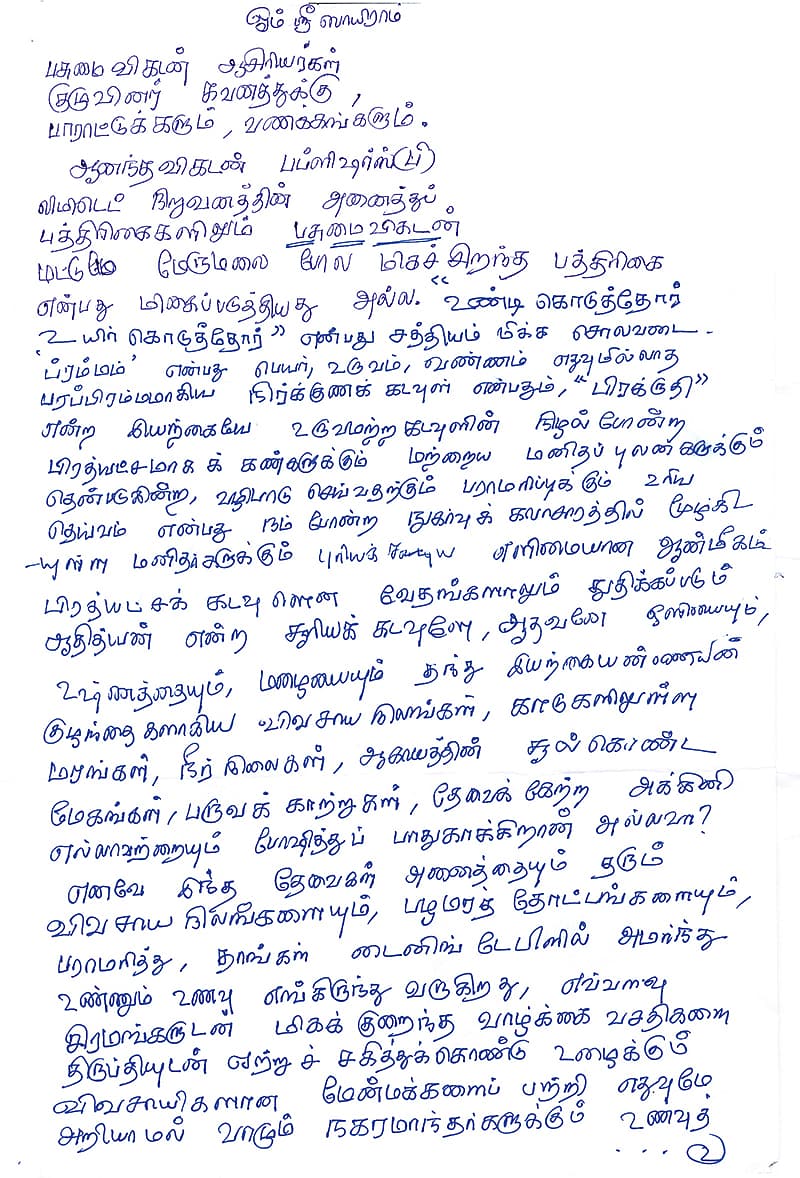 ஓம் ஸ்ரீ ஸாயிராம்
பசுமை விகடன் ஆசிரியர்கள்
குழுவினர் கவனத்துக்கு,
பாராட்டுக்களும், வணக்கங்களும்.
ஆனந்தவிகடன் பப்ளிஷர்ஸ் (பி)
லிமிடெட் நிறுவனத்தின் அனைத்துப்
பத்திரிகைகளிலும் பசுமை விகடன்
மட்டுமே மேருமலை போல மிகச் சிறந்த பத்திரிகை
என்பது மிகைப்படுத்தியது அல்ல. "உண்டி கொடுத்தோர்
உயிர் கொடுத்தோர்" என்பது சத்தியம் மிக்க சொலவடை -
'ப்ரம்மம்' என்பது பெயர், உருவம், வண்ணம் எதுவுமில்லாத
பரப்பிரம்மமாகிய நிர்க்குணக் கடவுள் என்பதும், "பிரக்ருதி"
என்ற இயற்கையே உருவமற்ற கடவுளின் நிழல் போன்ற
பிரத்யட்சமாகக் கண்களுக்கும் மற்றைய மனிதப் புலன்களுக்கும்
தென்படுகின்ற, வழிபாடு செய்வதற்கும் பராமரிப்புக்கும் உரிய
தெய்வம் என்பது நம் போன்ற நுகர்வுக் கலாசாரத்தில் மூழ்கி
-யுள்ள மனிதர்களுக்கும் புரியக் கூடிய எளிமையான ஆன்மீகம்
பிரத்யட்சக் கடவுளென வேதங்களாலும் துதிக்கப்படும்
ஆதித்யன் என்ற சூரியக் கடவுளே, ஆதவனே ஒளியையும்,
உஷ்ணத்தையும், மழையையும் தந்து இயற்கையன்னையின்
குழந்தைகளாகிய விவசாய நிலங்கள், காடுகளிலுள்ள
மரங்கள், நீர் நிலைகள், ஆகாயத்தின் சூல் கொண்ட
மேகங்கள், பருவக் காற்றுகள், தேவைக்கேற்ற அக்கினி
எல்லாவற்றையும் போஷித்துப் பாதுகாக்கிறான் அல்லவா?
எனவே இந்த தேவைகள் அனைத்தையும் தரும்
விவசாய நிலங்களையும், பழமரத் தோட்டங்களையும்,
பராமரித்து, தாங்கள் டைனிங் டேபிளில் அமர்ந்து
உண்ணும் உணவு எங்கிருந்து வருகிறது, எவ்வளவு
சிரமங்களுடன் மிகக் குறைந்த வாழ்க்கை வசதிகளை
திருப்தியுடன் ஏற்றுச் சகித்துக்கொண்டு உழைக்கும்
விவசாயிகளான மேன்மக்களைப் பற்றி எதுவுமே
அறியாமல் வாழும் நகரமாந்தர்களுக்கும் உணவுத்
... 2